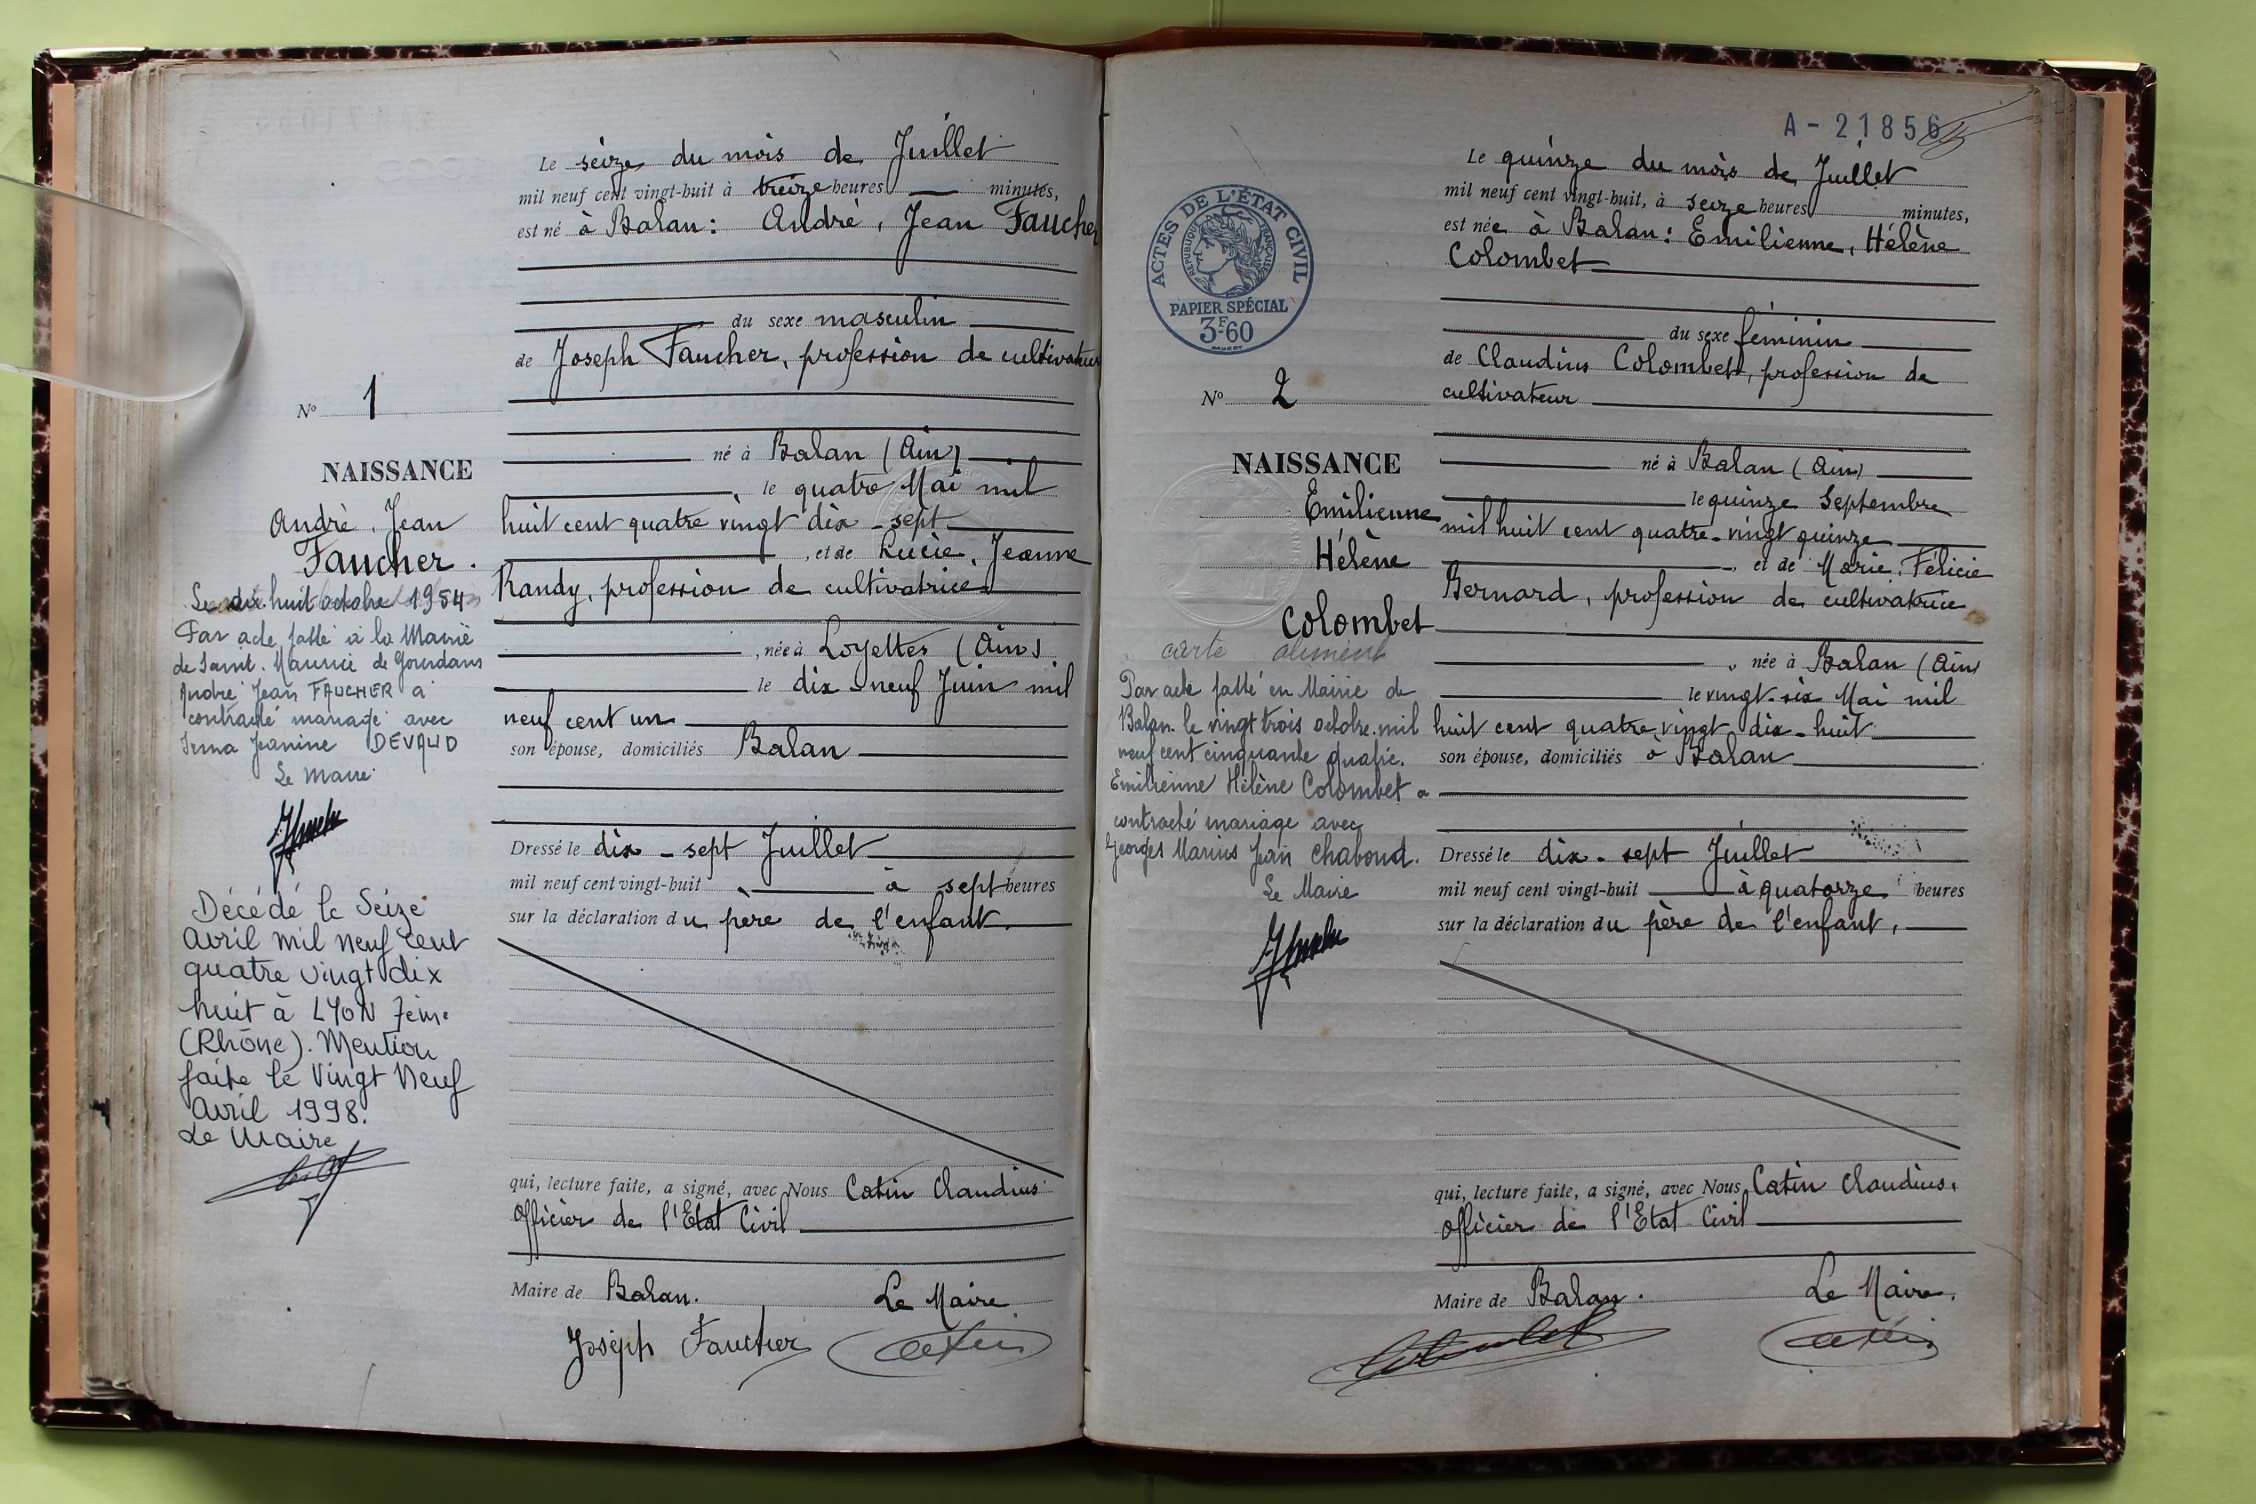 Le seize du mois de Juillet
mil neuf cent vingt-huit à treize heures minutes,
est né à Balan: André, Jean Faucher
du sexe masculin
de Joseph Faucher, profession de cultivateur
N° 1
né à Balan (Ain)
NAISSANCE
le quatre Mai mil
André, Jean
huit cent quatre vingt dix-sept
Faucher.
, et de Lucie, Jeanne
Randy, profession de cultivatrice
Le dix huit octobre 1954
Par acte passé à la Mairie
de Saint-Maurice de Gourdans
André Jean FAUCHER a
contracté mariage avec
Irma Jeanine DEVAUD
Le Maire
, née à Loyettes (Ain)
le dix-neuf Juin mil
neuf cent un
son épouse, domiciliés Balan
Dressé le dix-sept Juillet
mil neuf cent vingt-huit, à sept heures
sur la déclaration du père de l'enfant.
Décédé le Seize
avril mil neuf cent
quatre vingt dix
huit à LYON 7ème
(Rhône). Mention
faite le Vingt Neuf
Avril 1998.
Le Maire
qui, lecture faite, a signé, avec Nous Catin Claudius
Officier de l'Etat Civil
Maire de Balan. Le Maire
Joseph Faucher Catin
A-21856
Le quinze du mois de Juillet
mil neuf cent vingt-huit, à seize heures minutes,
est née à Balan: Emilienne, Hélène
Colombet
ACTES DE L'ÉTAT CIVIL
RÉPUBLIQUE FRANÇAISE
PAPIER SPÉCIAL
3F60
du sexe féminin
de Claudius Colombet, profession de
cultivateur
N° 2
né à Balan (Ain)
NAISSANCE
le quinze Septembre
Emilienne
mil huit cent quatre-vingt quinze
Hélène
, et de Marie, Félicie
Bernard, profession de cultivatrice
Colombet
carte aliment
, née à Balan (Ain)
le vingt-six Mai mil
huit cent quatre vingt dix-huit
son épouse, domiciliés à Balan
Par acte passé en Mairie de
Balan le vingt trois octobre mil
neuf cent cinquante quatre.
Emilienne Hélène Colombet a
contracté mariage avec
Georges Marius Jean Chaboud.
Le Maire
Dressé le dix-sept Juillet
mil neuf cent vingt-huit à quatorze heures
sur la déclaration du père de l'enfant,
qui, lecture faite, a signé, avec Nous Catin Claudius,
Officier de l'Etat Civil
Maire de Balan. Le Maire.
Colombet Catin